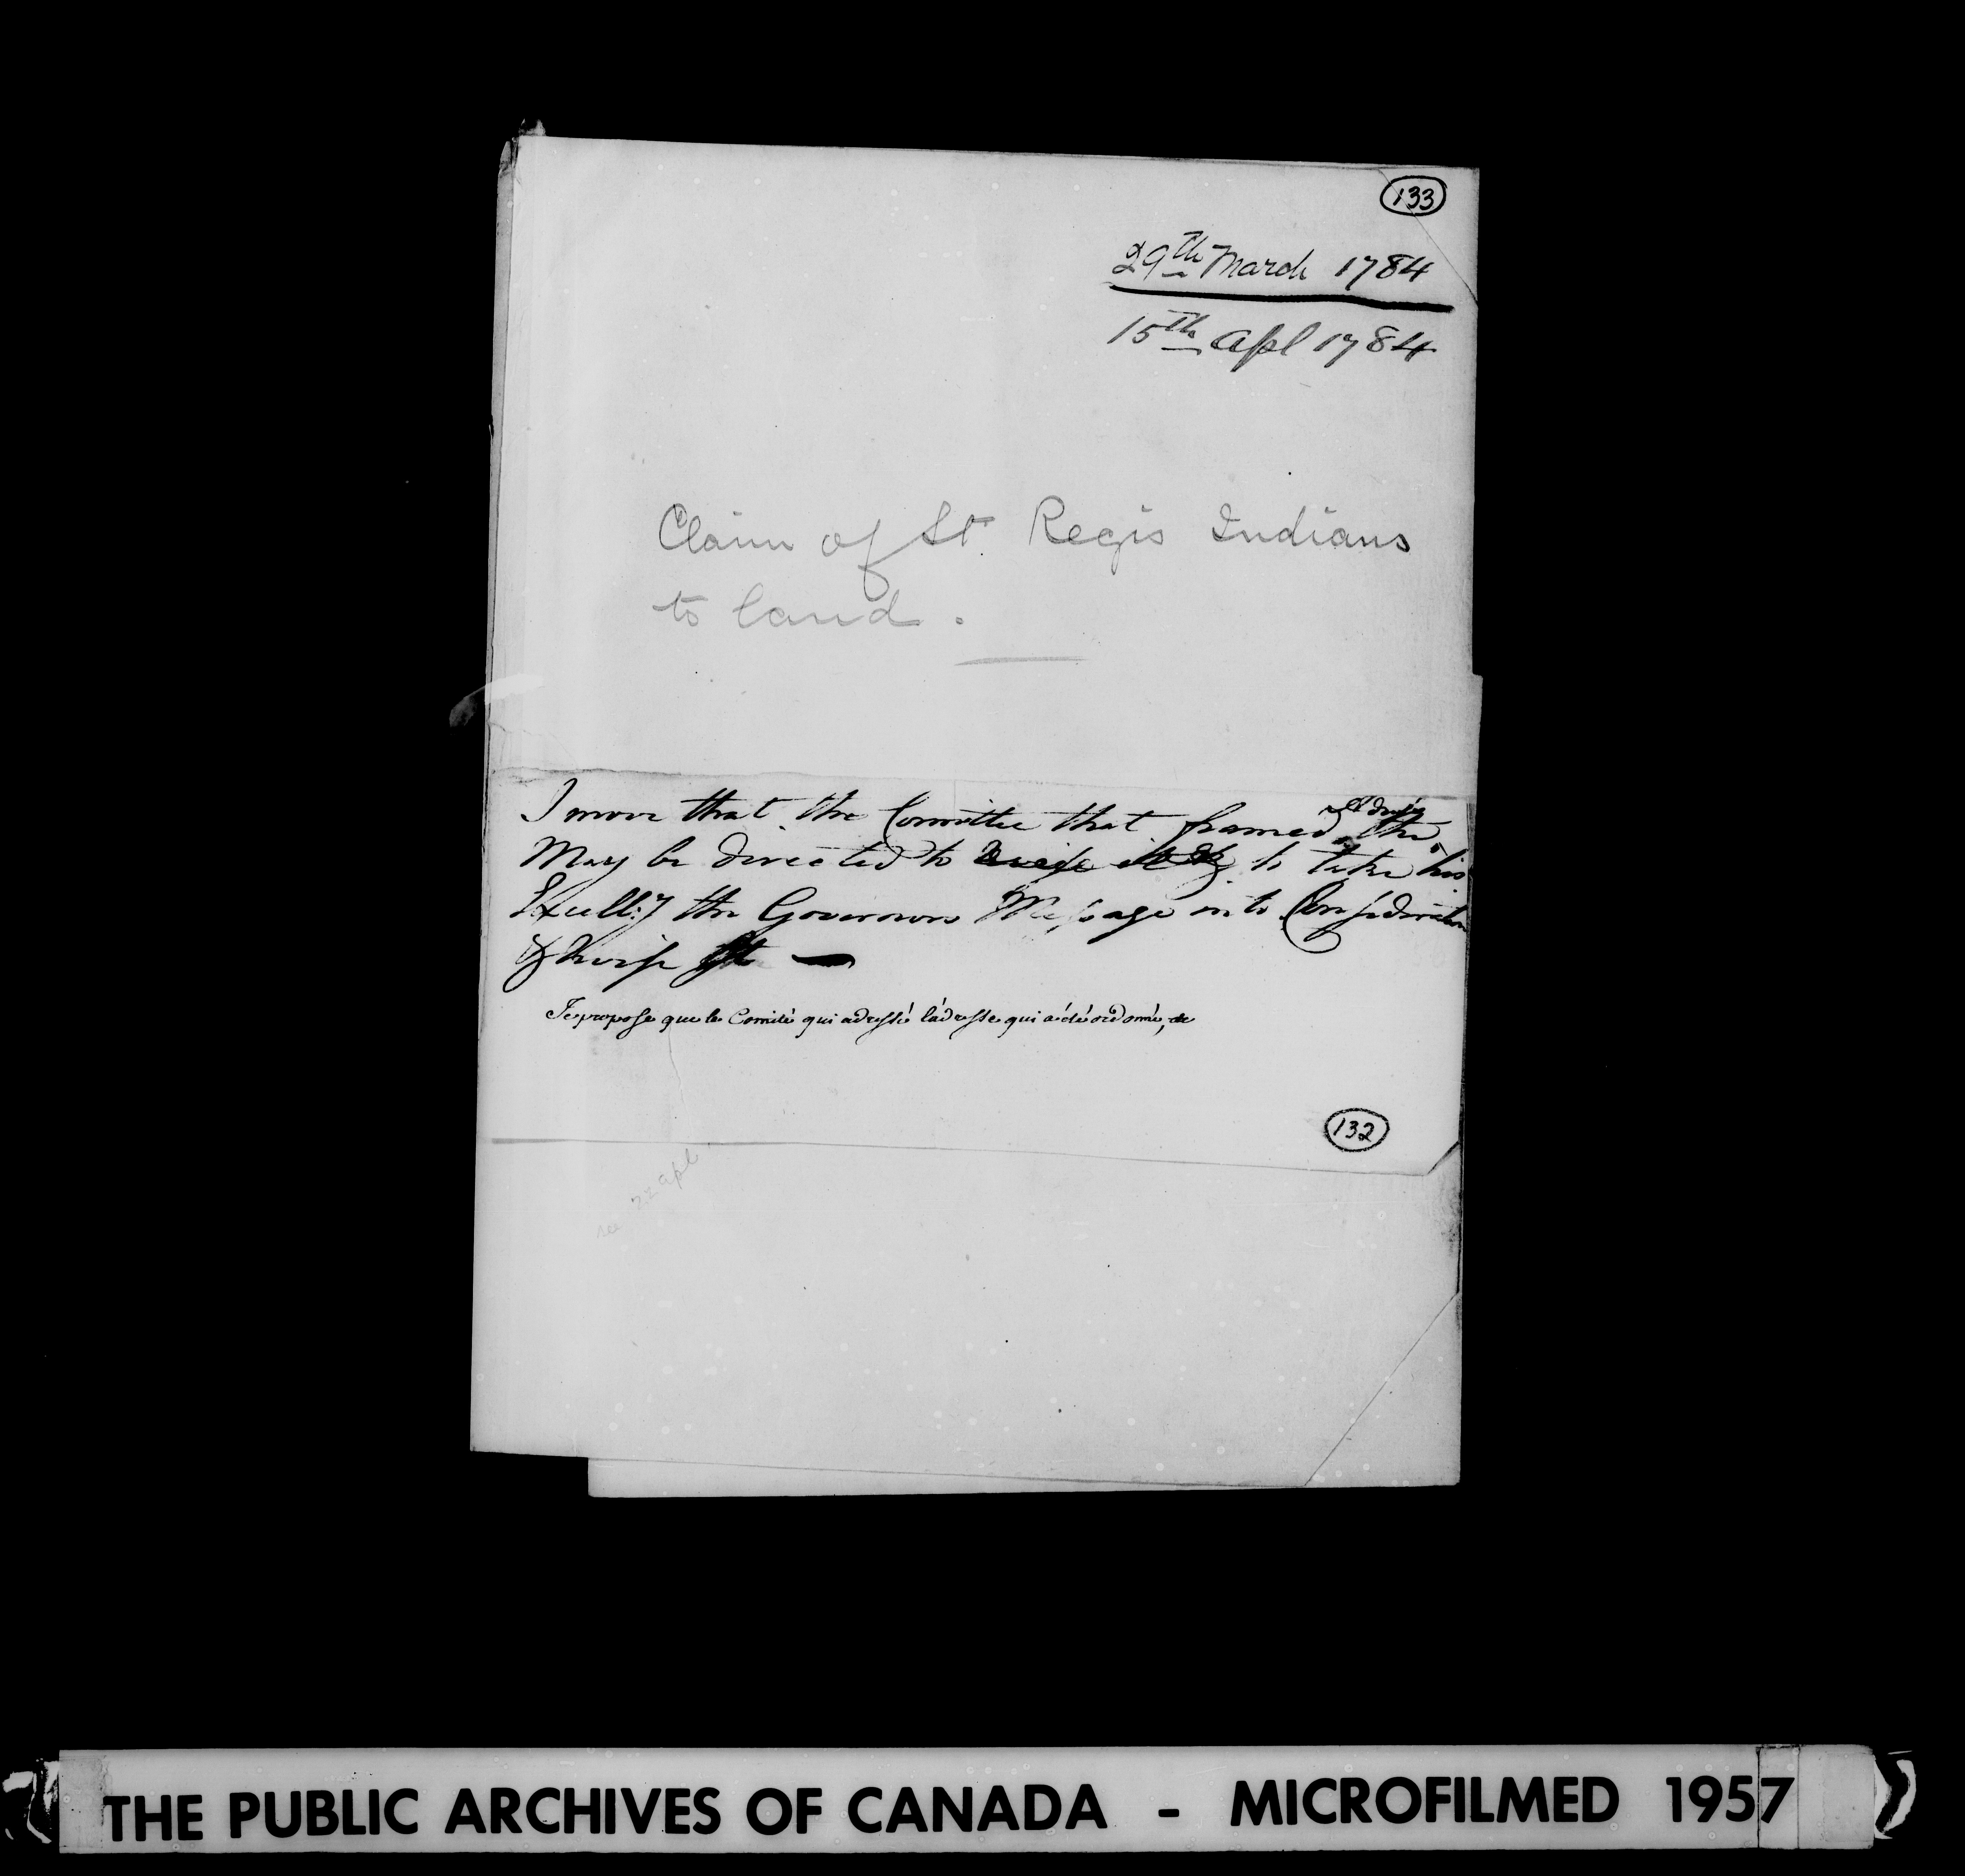 133
29th March 1784
15th Apl 1784
Claim of St Regis Indians
to land.
I move that the Committee that framed the Address
May be directed to to take his
Excell:y the Governors Message into Consideration
& revise it —
Je propose que le Comité qui adressé l'adresse qui a été ordonné, de
132
22 apl
THE PUBLIC ARCHIVES OF CANADA - MICROFILMED 1957